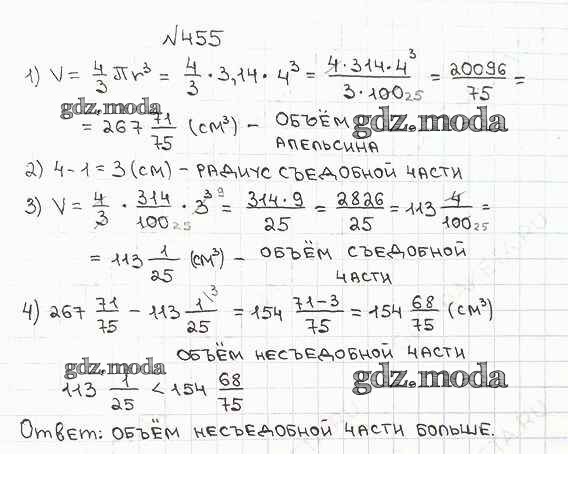 №455
1) V = 4/3 πr³ = 4/3 · 3,14 · 4³ = 4·314·4³ / 3·100 25 = 20096/75 =
gdz.moda
= 267 71/75 (см³) – ОБЪЁМ АПЕЛЬСИНА
gdz.moda
2) 4-1=3 (см) – РАДИУС СЪЕДОБНОЙ ЧАСТИ
3) V = 4/3 · 314/100 25 · 3³ 9 = 314·9/25 = 2826/25 = 113 4/100 25 =
= 113 1/25 (см³) – ОБЪЁМ СЪЕДОБНОЙ
ЧАСТИ
4) 267 71/75 – 113 1/25 \3 = 154 71-3/75 = 154 68/75 (см³)
ОБЪЁМ НЕСЪЕДОБНОЙ ЧАСТИ
gdz.moda
gdz.moda
113 1/25 < 154 68/75
Ответ: ОБЪЁМ НЕСЪЕДОБНОЙ ЧАСТИ БОЛЬШЕ.